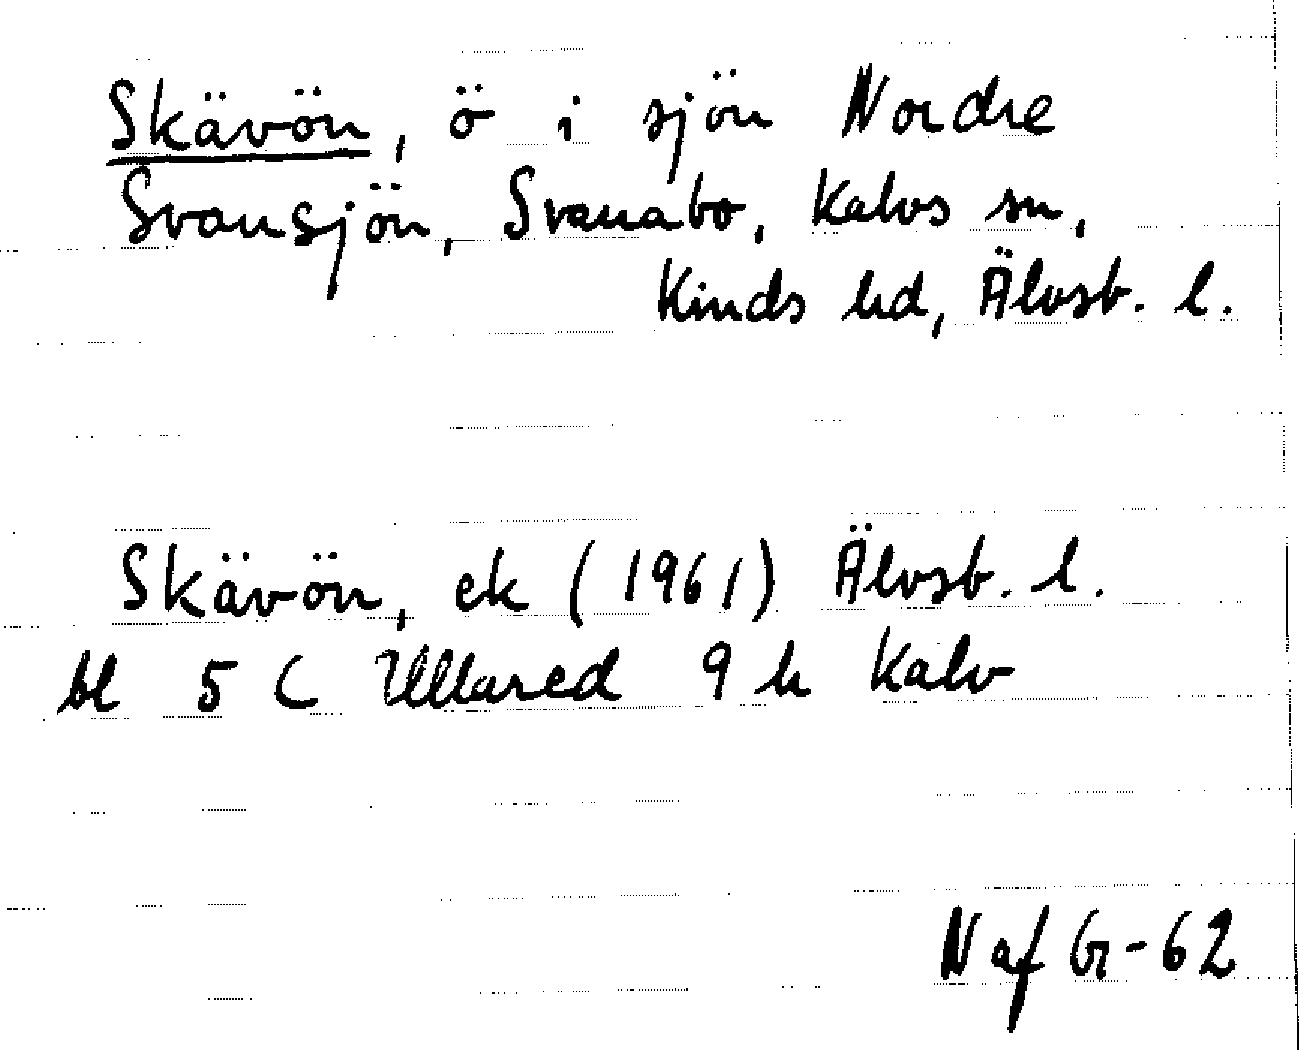 Skävön, ö i sjön Nordre
Svansjön, Svanabo, Kalvs sn,
Kinds hd, Älvsb. l.
Skävön, ek (1961) Älvsb. l.
bl 5 C Ullared 9 h Kalv
N af Gr-62